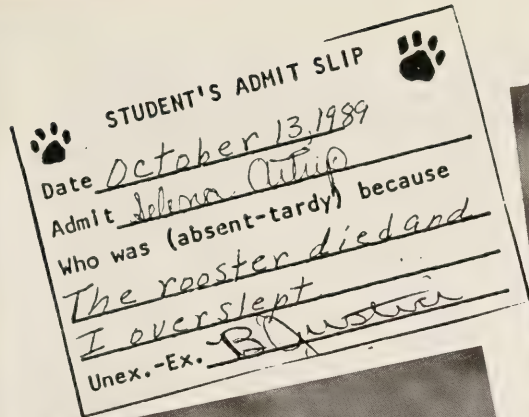 STUDENT'S ADMIT SLIP
Date October 13, 1989
Admit Selena Autrip
Who was (absent-tardy) because
The rooster died and
I overslept
Unex.-Ex. B Justice